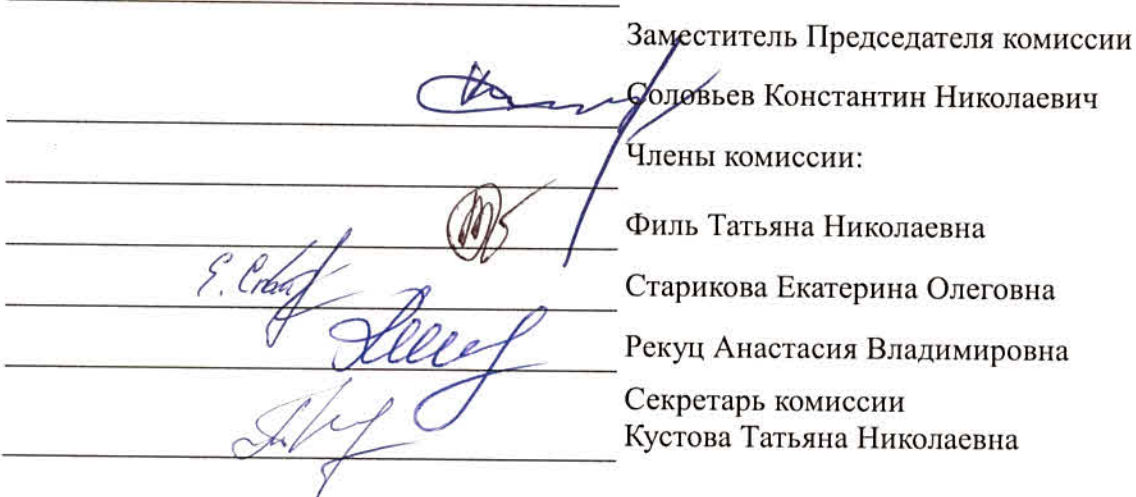 Заместитель Председателя комиссии
Соловьев Константин Николаевич
Члены комиссии:
Филь Татьяна Николаевна
Е. Стар
Старикова Екатерина Олеговна
Рекуц Анастасия Владимировна
Секретарь комиссии
Кустова Татьяна Николаевна